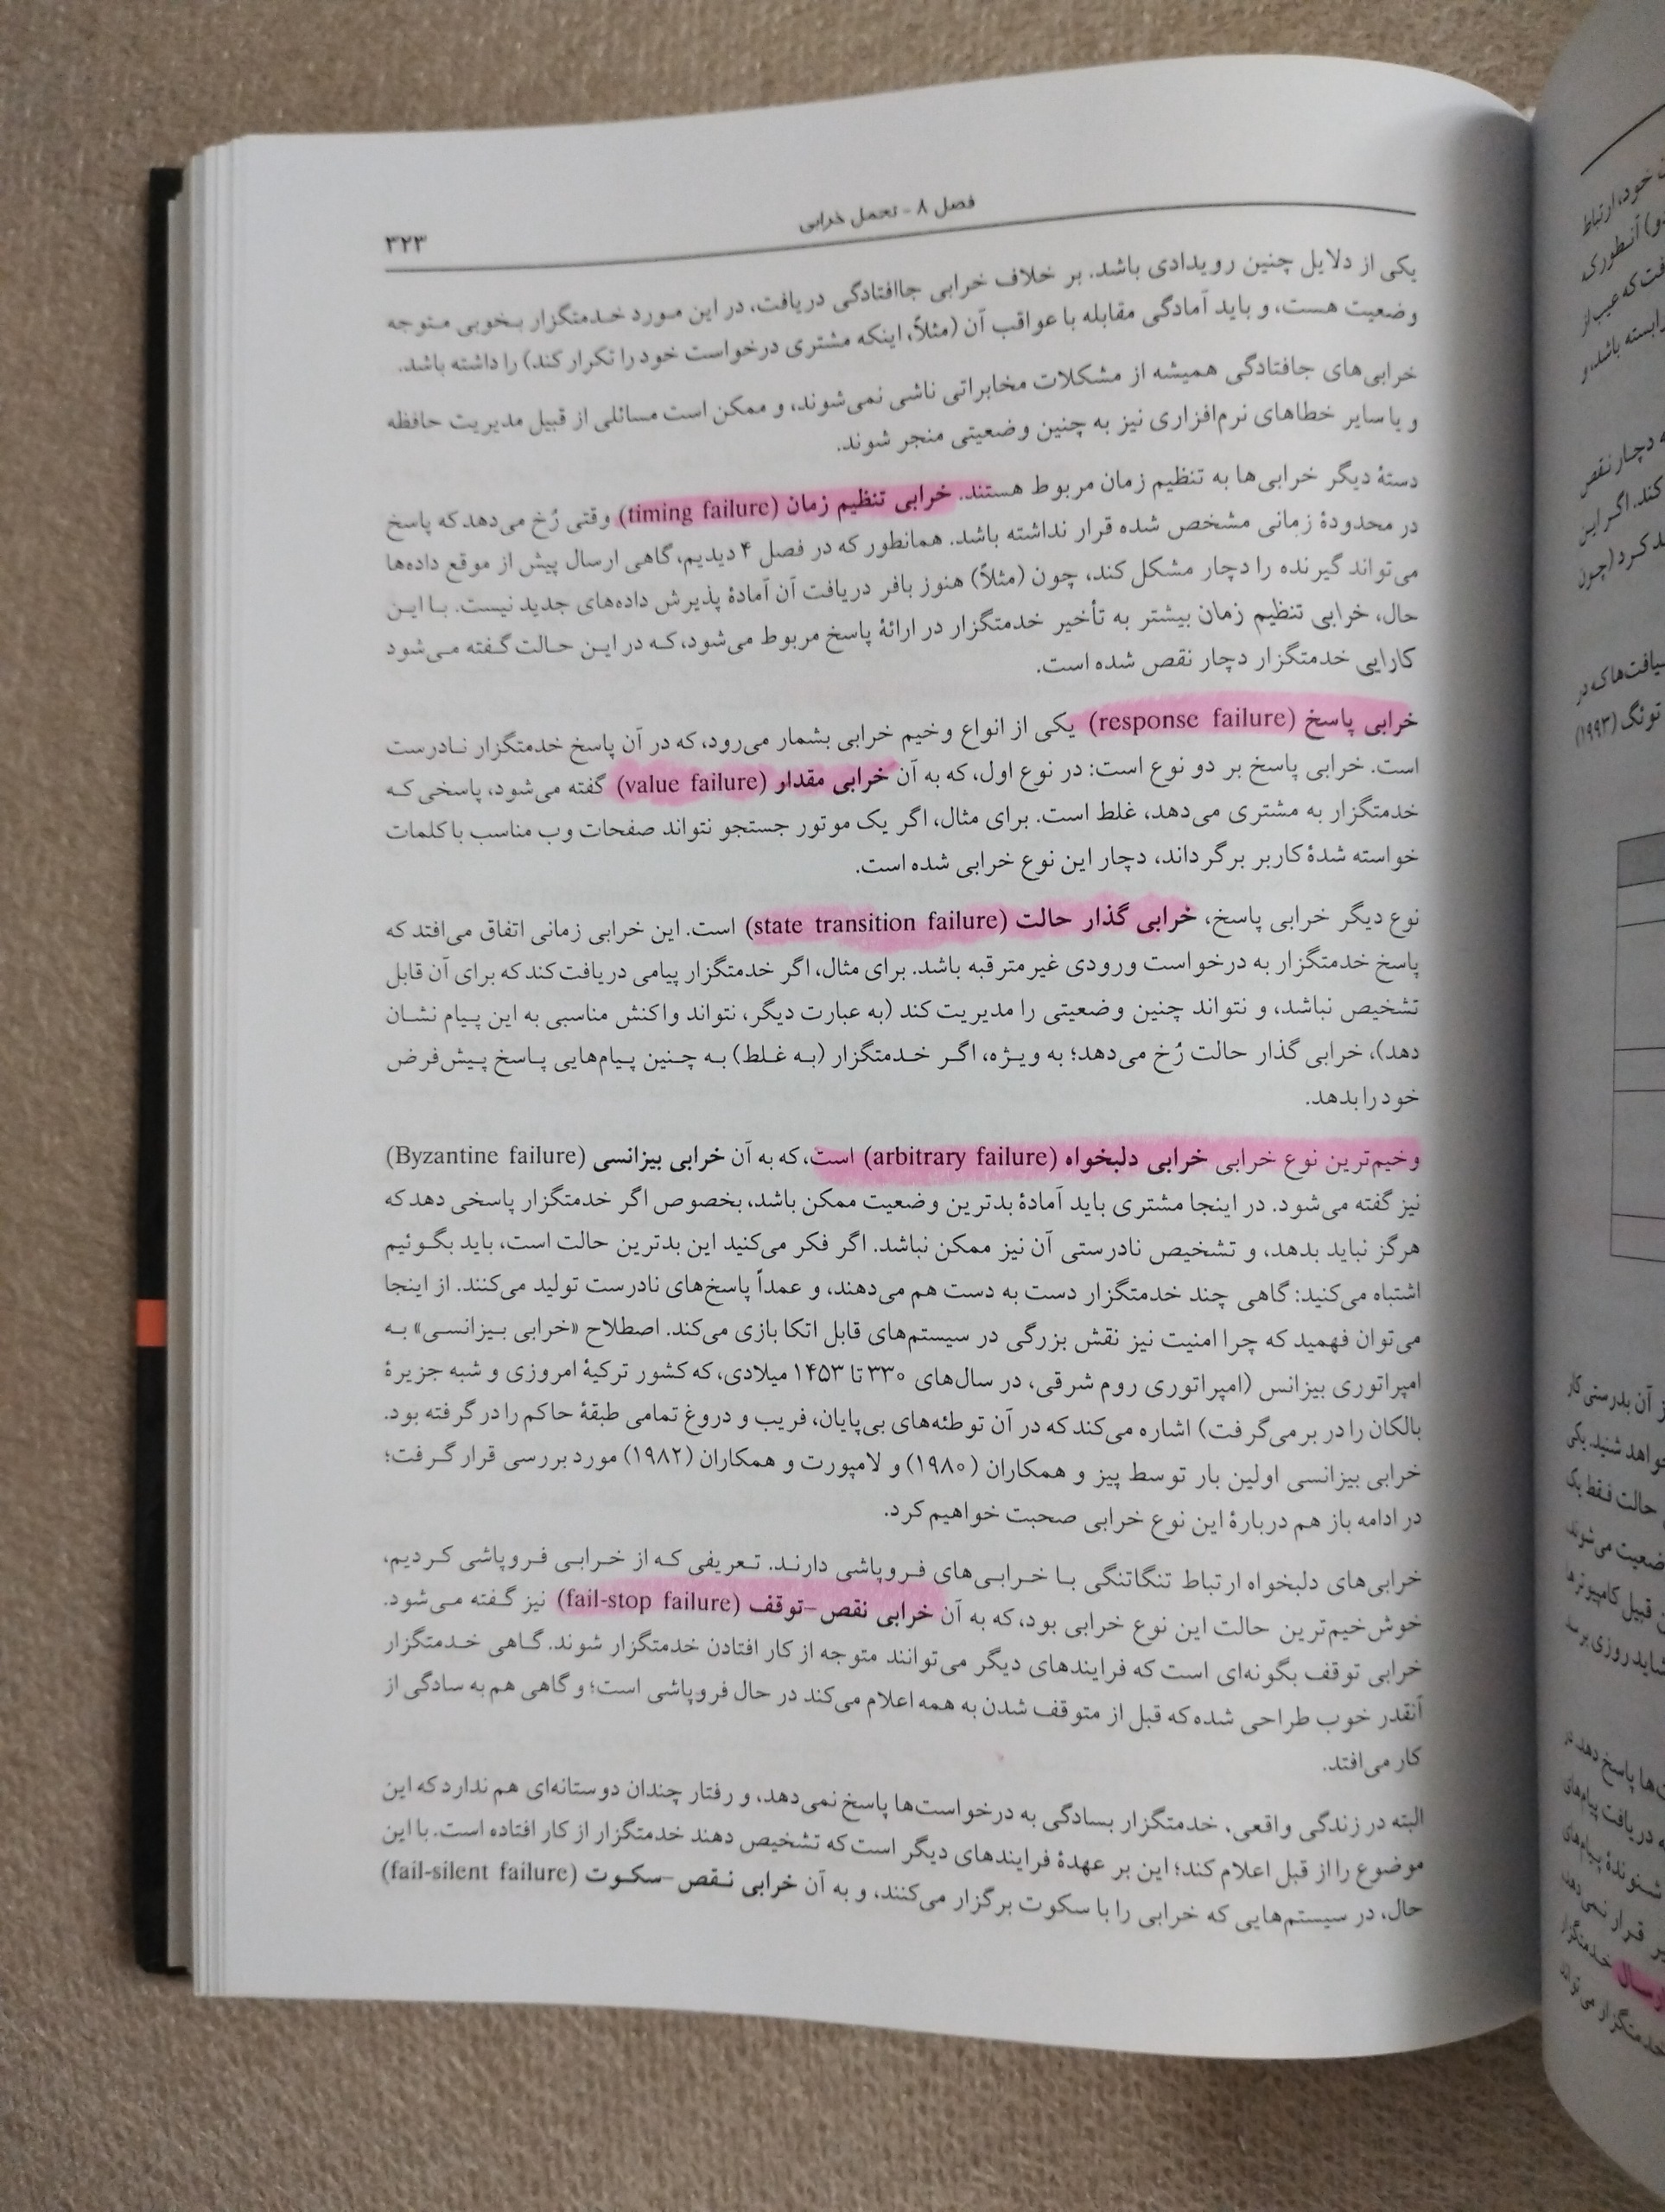 فصل ۸ - تحمل خرابی
۳۲۳
یکی از دلایل چنین رویدادی باشد. بر خلاف خرابی جاافتادگی دریافت، در این مورد خدمتگزار بخوبی متوجه
وضعیت هست، و باید آمادگی مقابله با عواقب آن (مثلاً، اینکه مشتری درخواست خود را تکرار کند) را داشته باشد.
خرابی‌های جافتادگی همیشه از مشکلات مخابراتی ناشی نمی‌شوند، و ممکن است مسائلی از قبیل مدیریت حافظه
و یا سایر خطاهای نرم‌افزاری نیز به چنین وضعیتی منجر شوند.
دستهٔ دیگر خرابی‌ها به تنظیم زمان مربوط هستند. خرابی تنظیم زمان (timing failure) وقتی رُخ می‌دهد که پاسخ
در محدودهٔ زمانی مشخص شده قرار نداشته باشد. همانطور که در فصل ۴ دیدیم، گاهی ارسال پیش از موقع داده‌ها
می‌تواند گیرنده را دچار مشکل کند، چون (مثلاً) هنوز بافر دریافت آن آمادهٔ پذیرش داده‌های جدید نیست. با این
حال، خرابی تنظیم زمان بیشتر به تأخیر خدمتگزار در ارائهٔ پاسخ مربوط می‌شود، که در این حالت گفته می‌شود
کارایی خدمتگزار دچار نقص شده است.
خرابی پاسخ (response failure) یکی از انواع وخیم خرابی بشمار می‌رود، که در آن پاسخ خدمتگزار نادرست
است. خرابی پاسخ بر دو نوع است: در نوع اول، که به آن خرابی مقدار (value failure) گفته می‌شود، پاسخی که
خدمتگزار به مشتری می‌دهد، غلط است. برای مثال، اگر یک موتور جستجو نتواند صفحات وب مناسب با کلمات
خواسته شدهٔ کاربر برگرداند، دچار این نوع خرابی شده است.
نوع دیگر خرابی پاسخ، خرابی گذار حالت (state transition failure) است. این خرابی زمانی اتفاق می‌افتد که
پاسخ خدمتگزار به درخواست ورودی غیرمترقبه باشد. برای مثال، اگر خدمتگزار پیامی دریافت کند که برای آن قابل
تشخیص نباشد، و نتواند چنین وضعیتی را مدیریت کند (به عبارت دیگر، نتواند واکنش مناسبی به این پیام نشان
دهد)، خرابی گذار حالت رُخ می‌دهد؛ به ویژه، اگر خدمتگزار (به غلط) به چنین پیام‌هایی پاسخ پیش‌فرض
خود را بدهد.
وخیم‌ترین نوع خرابی خرابی دلبخواه (arbitrary failure) است، که به آن خرابی بیزانسی (Byzantine failure)
نیز گفته می‌شود. در اینجا مشتری باید آمادهٔ بدترین وضعیت ممکن باشد، بخصوص اگر خدمتگزار پاسخی دهد که
هرگز نباید بدهد، و تشخیص نادرستی آن نیز ممکن نباشد. اگر فکر می‌کنید این بدترین حالت است، باید بگوئیم
اشتباه می‌کنید: گاهی چند خدمتگزار دست به دست هم می‌دهند، و عمداً پاسخ‌های نادرست تولید می‌کنند. از اینجا
می‌توان فهمید که چرا امنیت نیز نقش بزرگی در سیستم‌های قابل اتکا بازی می‌کند. اصطلاح «خرابی بیزانسی» به
امپراتوری بیزانس (امپراتوری روم شرقی، در سال‌های ۳۳۰ تا ۱۴۵۳ میلادی، که کشور ترکیهٔ امروزی و شبه جزیرهٔ
بالکان را در بر می‌گرفت) اشاره می‌کند که در آن توطئه‌های بی‌پایان، فریب و دروغ تمامی طبقهٔ حاکم را در گرفته بود.
خرابی بیزانسی اولین بار توسط پیز و همکاران (۱۹۸۰) و لامپورت و همکاران (۱۹۸۲) مورد بررسی قرار گرفت؛
در ادامه باز هم دربارهٔ این نوع خرابی صحبت خواهیم کرد.
خرابی‌های دلبخواه ارتباط تنگاتنگی با خرابی‌های فروپاشی دارند. تعریفی که از خرابی فروپاشی کردیم،
خوش‌خیم‌ترین حالت این نوع خرابی بود، که به آن خرابی نقص-توقف (fail-stop failure) نیز گفته می‌شود.
خرابی توقف بگونه‌ای است که فرایندهای دیگر می‌توانند متوجه از کار افتادن خدمتگزار شوند. گاهی خدمتگزار
آنقدر خوب طراحی شده که قبل از متوقف شدن به همه اعلام می‌کند در حال فروپاشی است؛ و گاهی هم به سادگی از
کار می‌افتد.
البته در زندگی واقعی، خدمتگزار بسادگی به درخواست‌ها پاسخ نمی‌دهد، و رفتار چندان دوستانه‌ای هم ندارد که این
موضوع را از قبل اعلام کند؛ این بر عهدهٔ فرایندهای دیگر است که تشخیص دهند خدمتگزار از کار افتاده است. با این
حال، در سیستم‌هایی که خرابی را با سکوت برگزار می‌کنند، و به آن خرابی نقص-سکوت (fail-silent failure)